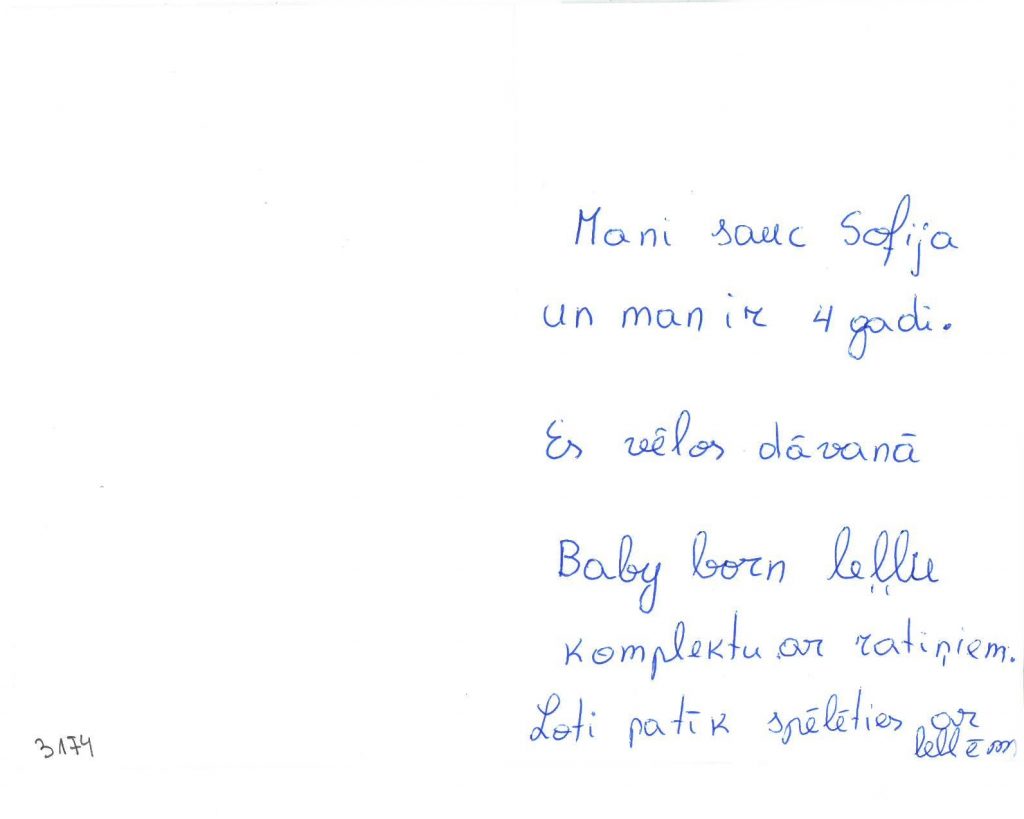 Mani sauc Sofija
un man ir 4 gadi.
Es vēlos dāvanā
Baby born leļļu
komplektu ar ratiņiem.
Loti patīk spēlēties ar
lellēm
3174